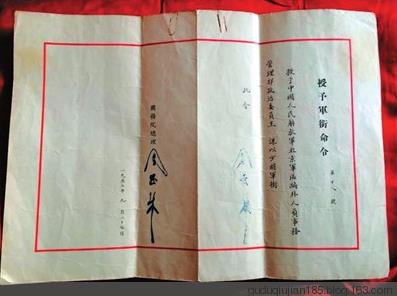 授予軍銜命令
第十八號
授予中國人民解放軍北京軍區編外人員事務
管理部政治委員王 以少將軍銜
此令
國務院總理
一九五五年九月二十七日
guduqiujian185.blog.163.com